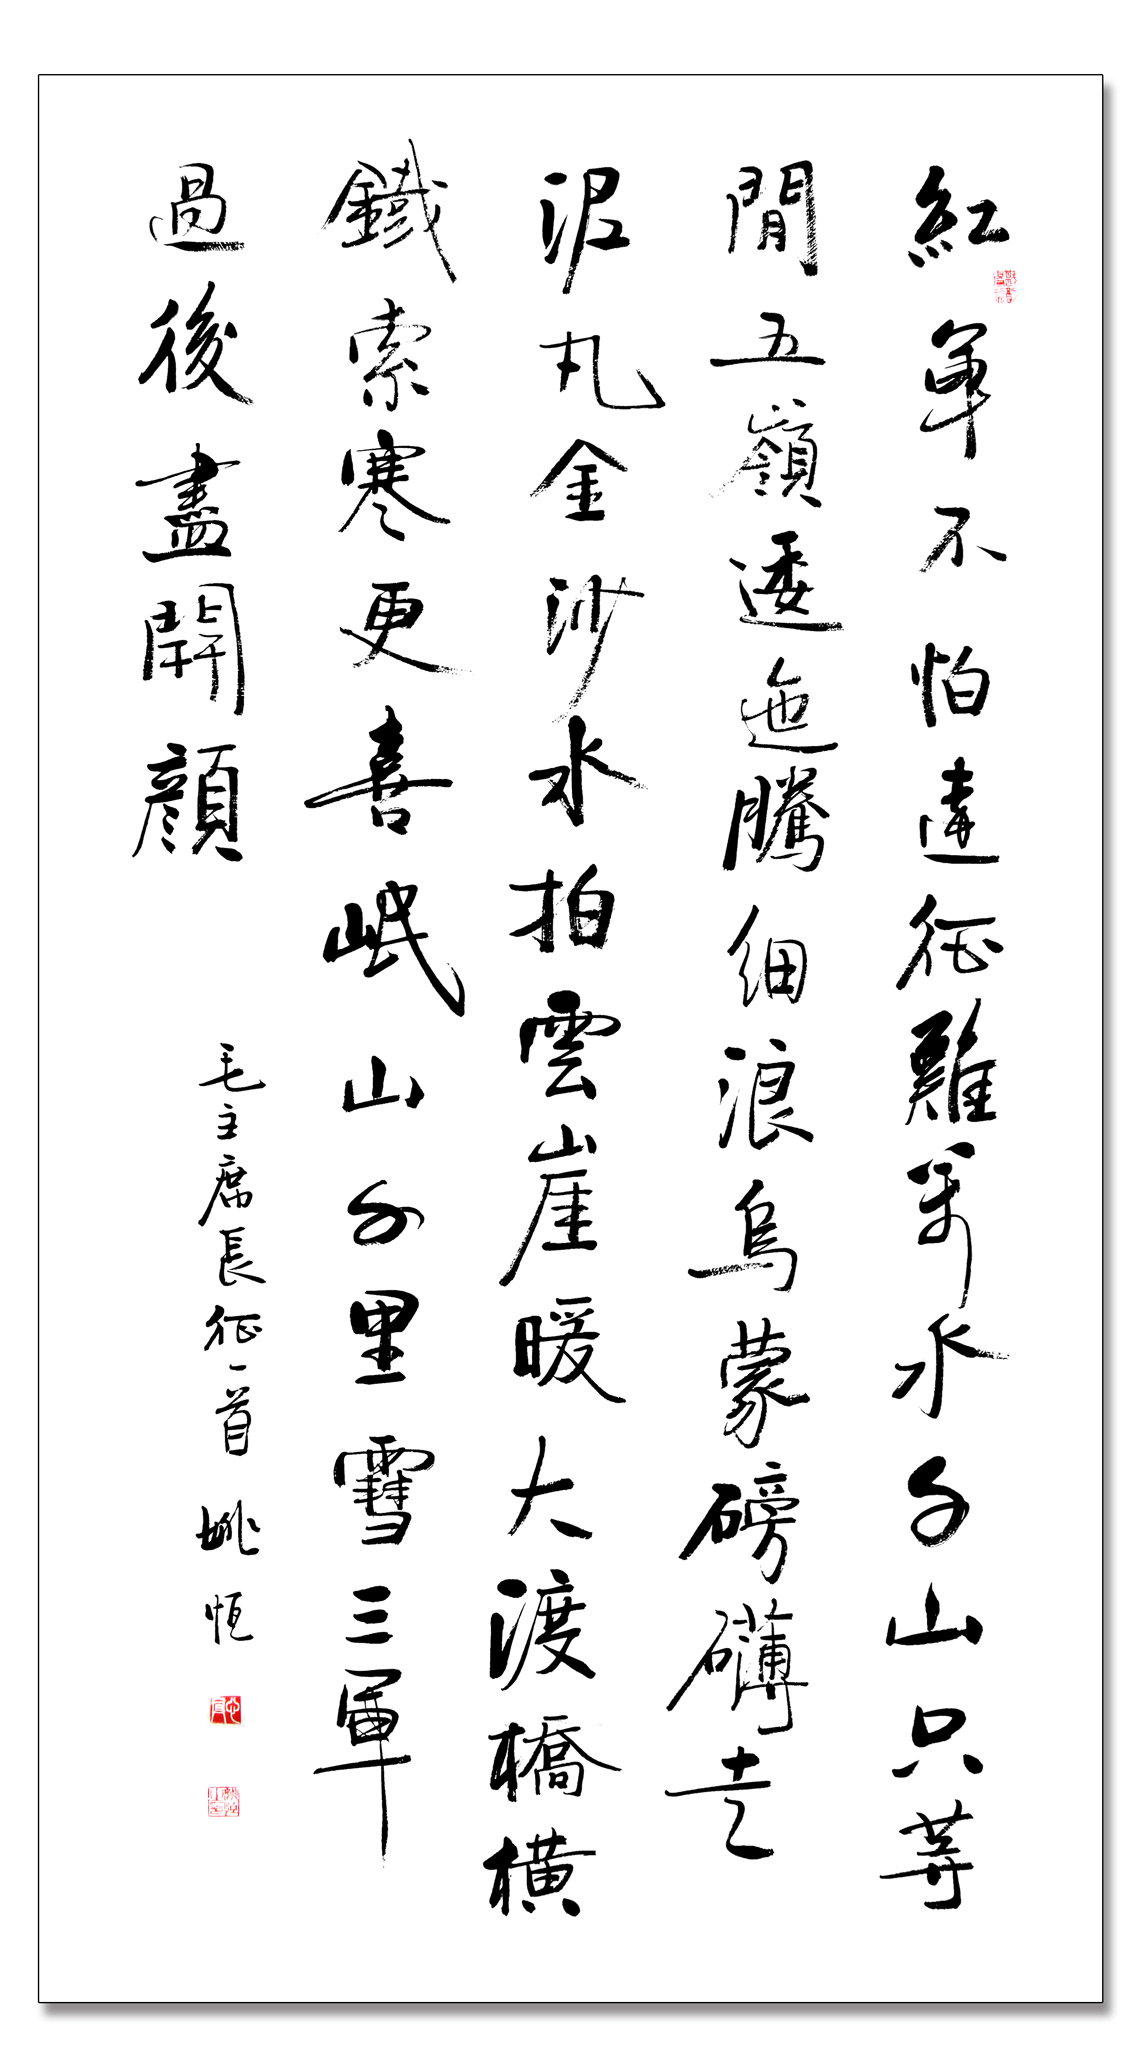 紅軍不怕遠征難萬水千山只等
閒五嶺逶迤騰細浪烏蒙磅礴走
泥丸金沙水拍雲崖暖大渡橋橫
鐵索寒更喜岷山千里雪三軍
過後盡開顏
毛主席長征一首 姚恒